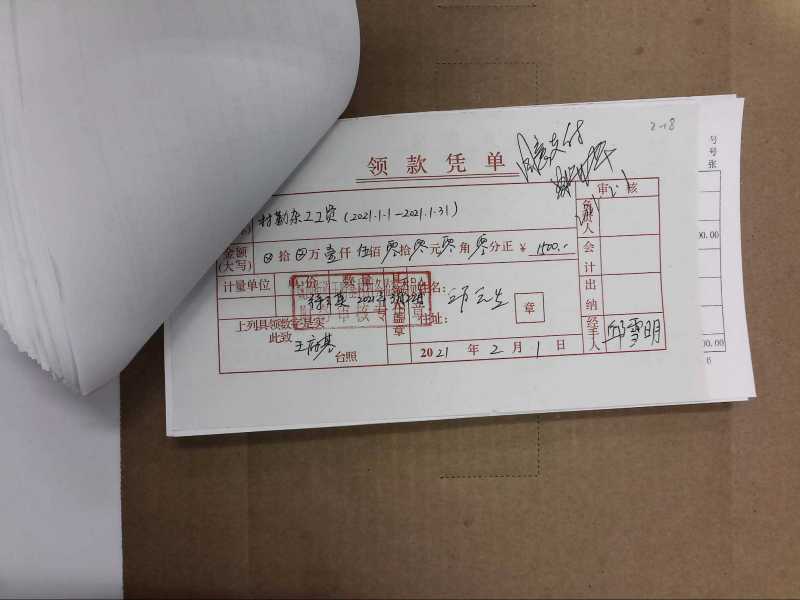 2-18
号
号
张
领款凭单
同意支付
审核
村勤杂工工资(2021.1.1-2021.1.31)
负责人
金额
(大写)
拾 万壹仟伍佰零拾零元零角零分正 ¥ 1500.-
会计
00.00
计量单位 单价 数量
姓名:
出纳
审核专用章
2021
盖章
住址:
章
上列具领数记是实
此致
台照
2021年2月1日
经手人
邱雪明
00.00
6